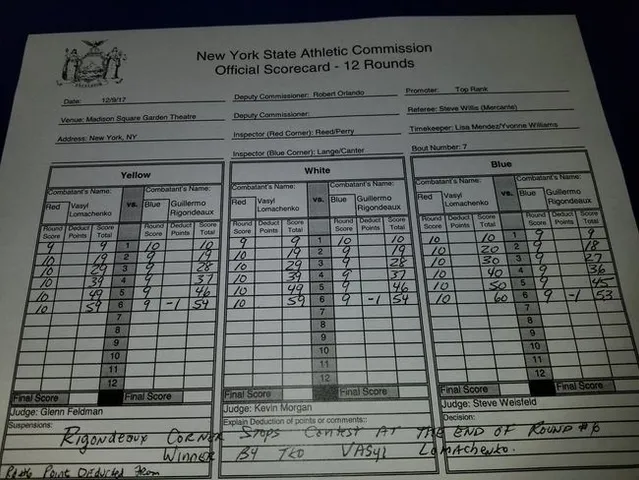 New York State Athletic Commission
Official Scorecard - 12 Rounds
Date: 12/9/17 Deputy Commissioner: Robert Orlando Promoter: Top Rank
Venue: Madison Square Garden Theatre Deputy Commissioner: Referee: Steve Willis (Mercante)
Address: New York, NY Inspector (Red Corner): Reed/Perry Timekeeper: Lisa Mendez/Yvonne Williams
Inspector (Blue Corner): Lange/Canter Bout Number: 7
Yellow White Blue
Combatant's Name: Combatant's Name: Combatant's Name: Combatant's Name: Combatant's Name: Combatant's Name:
Red Vasyl Lomachenko vs. Blue Guillermo Rigondeaux Red Vasyl Lomachenko vs. Blue Guillermo Rigondeaux Red Vasyl Lomachenko vs. Blue Guillermo Rigondeaux
Round Score Deduct Points Score Total Round Score Deduct Points Score Total Round Score Deduct Points Score Total Round Score Deduct Points Score Total Round Score Deduct Points Score Total Round Score Deduct Points Score Total
9 9 1 10 10 9 9 1 10 10 10 10 1 9 9
10 19 2 9 19 10 19 2 9 19 10 20 2 9 18
10 29 3 9 28 10 29 3 9 28 10 30 3 9 27
10 39 4 9 37 10 39 4 9 37 10 40 4 9 36
10 49 5 9 46 10 49 5 9 46 10 50 5 9 45
10 59 6 9 -1 54 10 59 6 9 -1 54 10 60 6 9 -1 53
7 7 7
8 8 8
9 9 9
10 10 10
11 11 11
12 12 12
Final Score Final Score Final Score Final Score Final Score Final Score
Judge: Glenn Feldman Judge: Kevin Morgan Judge: Steve Weisfeld
Suspensions: Explain Deduction of points or comments:: Decision:
Rigondeaux CORNER STOPS CONTEST AT THE END OF ROUND #6
WINNER BY TKO VASYL LOMACHENKO.
POINT DEDUCTED FROM